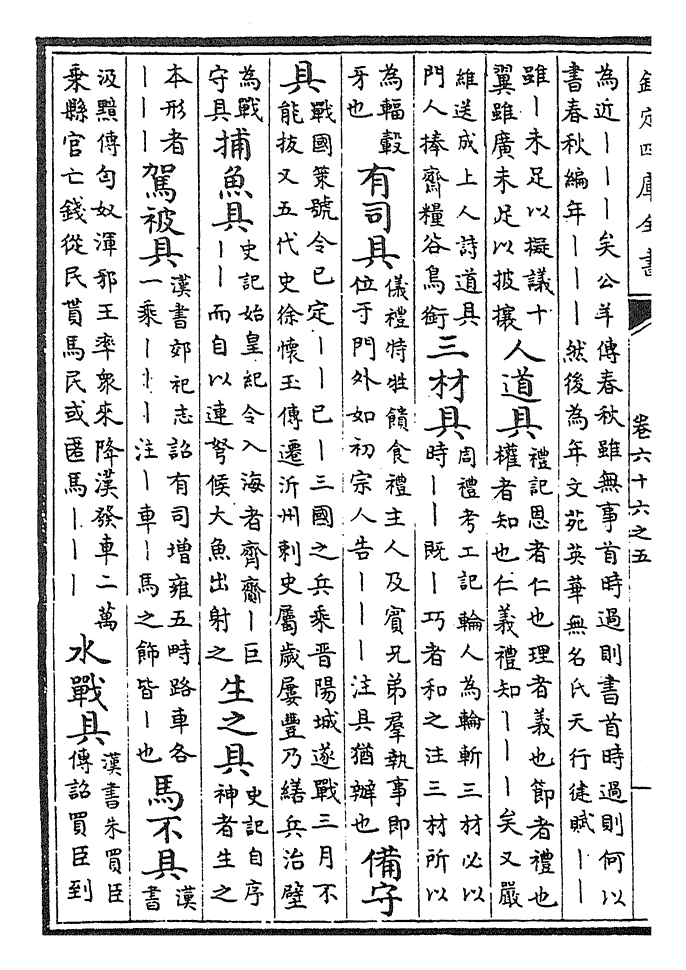 欽定四庫全書
卷六十六之五
為近丨丨丨矣公羊傳春秋雖無事首時過則書首時過則何以
書春秋編年丨丨丨丨然後為年文苑英華無名氏天行徤賦丨丨
雖丨未足以擬議十
翼雖廣未足以披攘
人道具
禮記恩者仁也理者義也節者禮也
權者知也仁義禮知丨丨丨矣又嚴
維送成上人詩道具
門人捧齋糧谷鳥銜
三材具
周禮考工記輪人為輪斬三材必以
時丨丨既丨巧者和之注三材所以
為輻轂
牙也
有司具
儀禮特牲饋食禮主人及賓兄弟羣執事即
位于門外如初宗人告丨丨丨注具猶辦也
備守
具
戰國策號令已定丨丨已丨三國之兵乘晉陽城遂戰三月不
能拔又五代史徐懷玉傳遷沂州刺史屬歲屢豐乃繕兵治壁
為戰
守具
捕魚具
史記始皇紀令入海者齊齎丨巨
丨丨而自以連弩候大魚出射之
生之具
史記自序
神者生之
本形者
丨丨丨
駕被具
漢書郊祀志詔有司增雍五畤路車各
一乘丨丨丨注丨車丨馬之飾皆丨也
馬不具
漢
書
汲黯傳匈奴渾邪王率衆來降漢發車二萬
乘縣官亡錢從民貰馬民或匿馬丨丨丨
水戰具
漢書朱買臣
傳詔買臣到